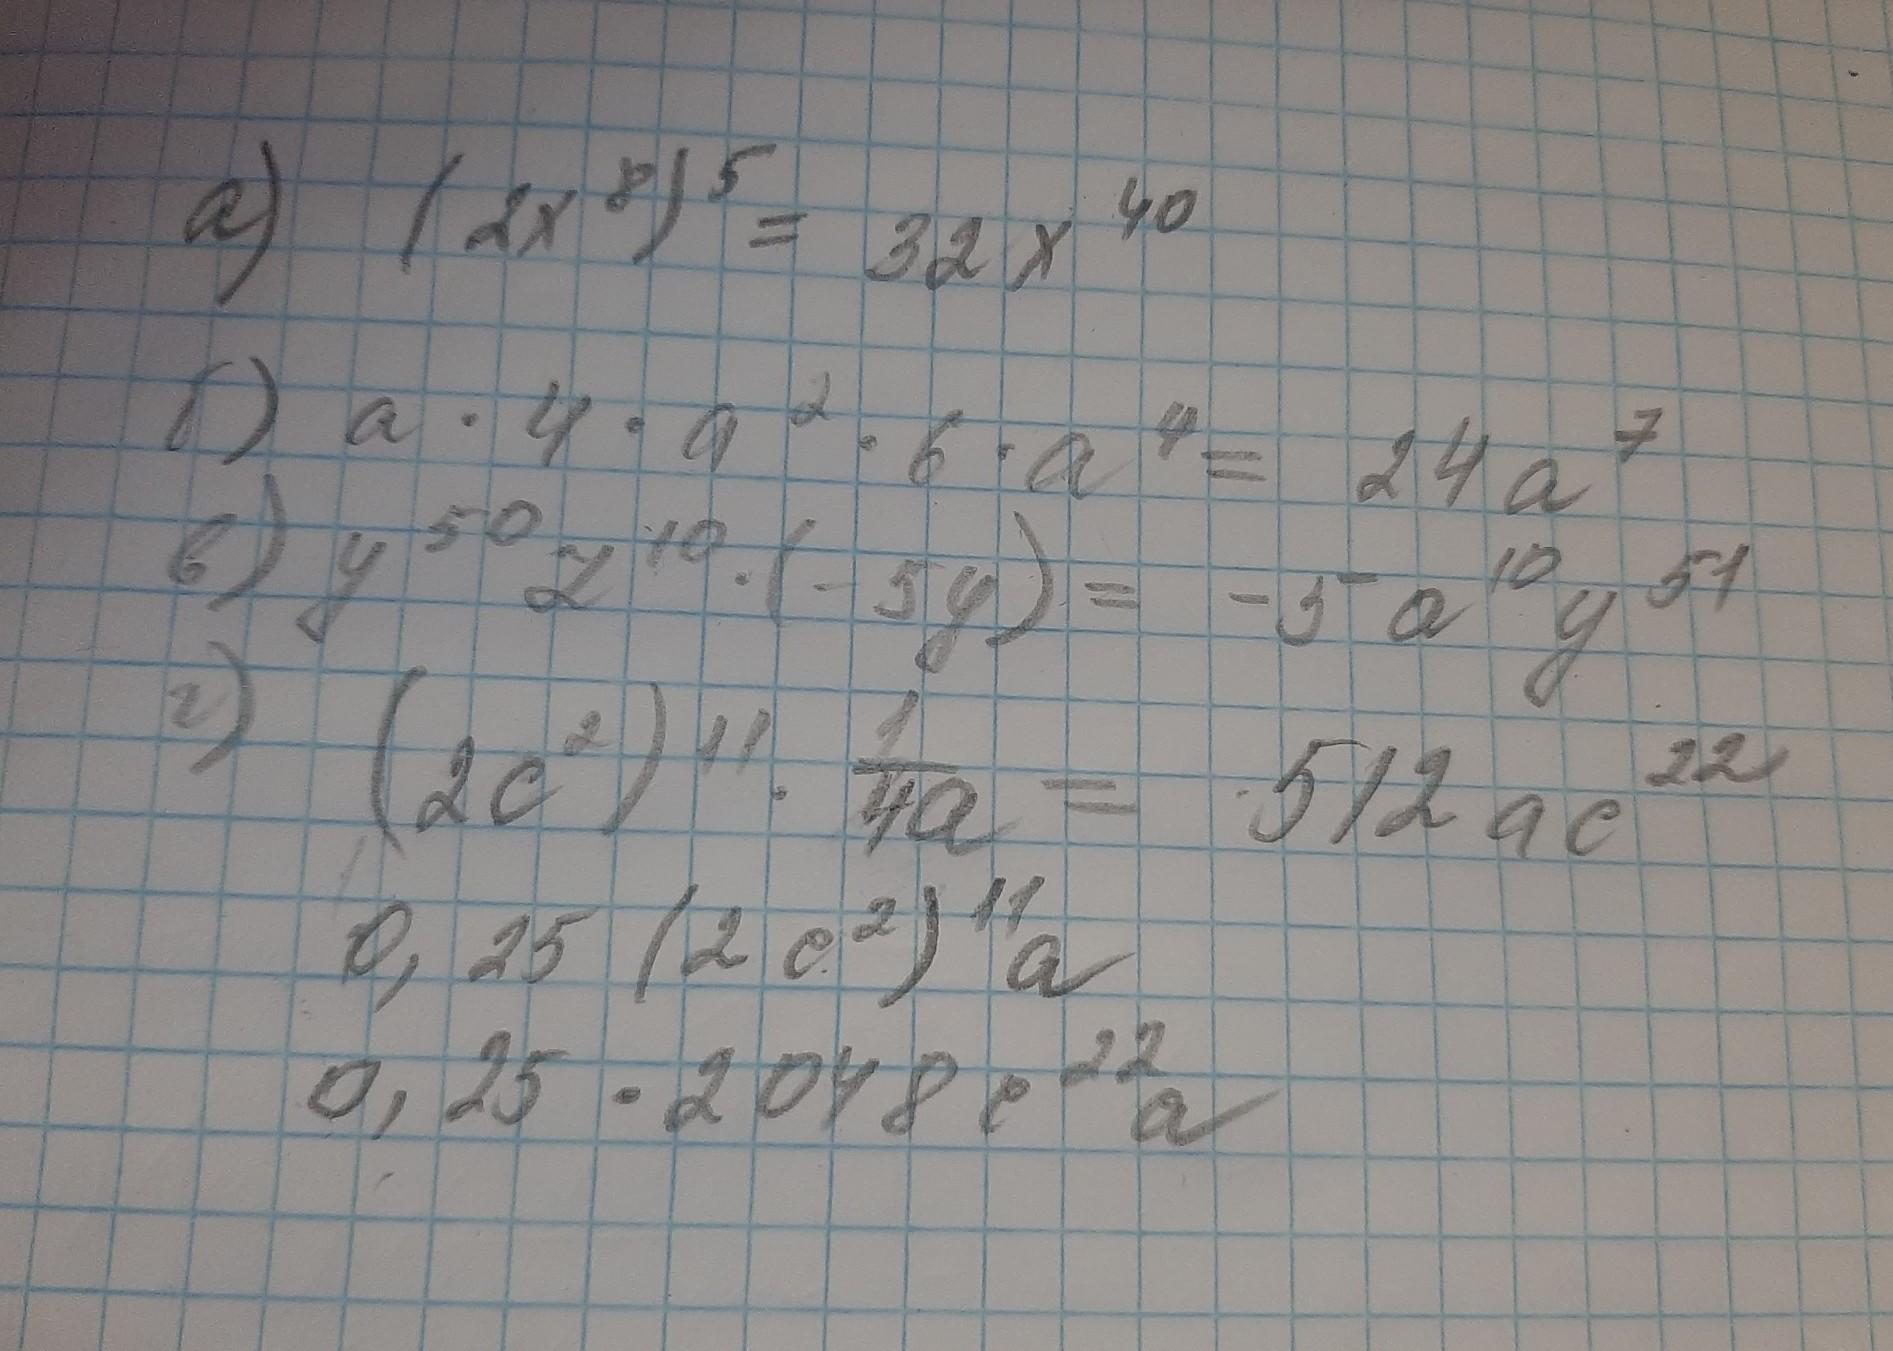 а) (2x⁸)⁵ = 32x⁴⁰
б) a · 4 · a² · 6 · a⁴ = 24a⁷
в) y⁵⁰z¹⁰ · (-5y) = -5a¹⁰y⁵¹
г) (2c²)¹¹ · 1/4a = 512ac²²
0,25(2c²)¹¹a
0,25 · 2048c²²a